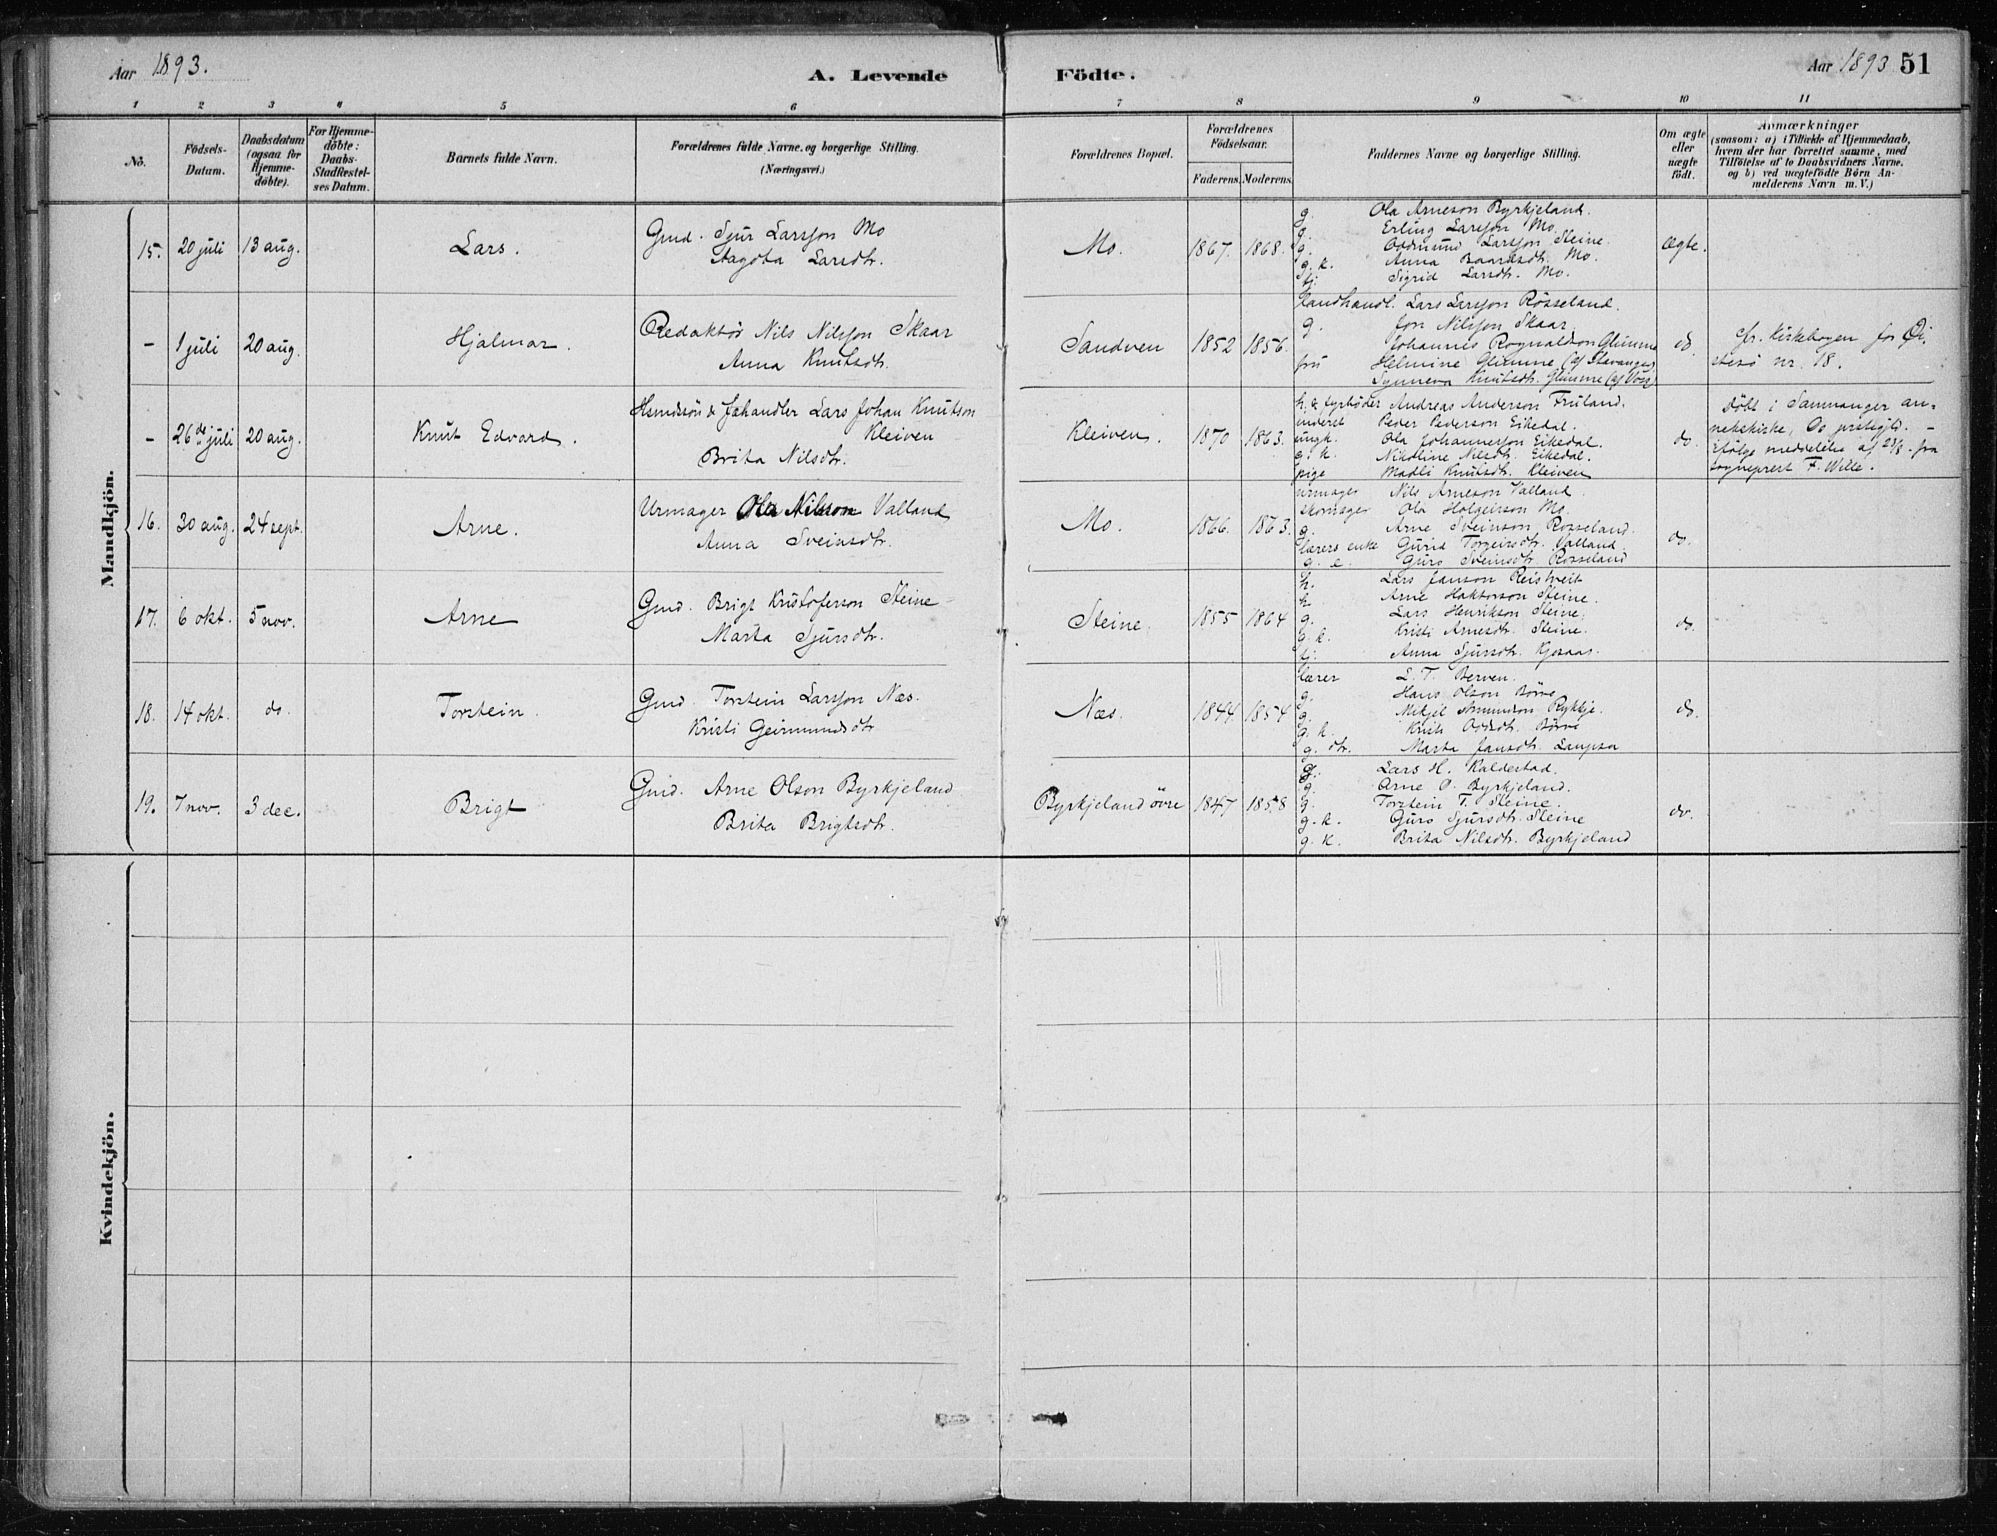 Aar 1893.
A. Levende Födte.
Aar 1893 51
1 2 3 4 5 6 7 8 9 10 11
No.
Födsels-
Datum.
Daabsdatum
(ogsaa for
Hjemme-
döbte).
For Hjemme-
döbte:
Daabs-
Stadfestel-
ses Datum.
Barnets fulde Navn.
Forældrenes fulde Navne og borgerlige Stilling.
(Næringsvei.)
Forældrenes Bopæl.
Forældrenes
Födselsaar.
Faderens. Moderens.
Faddernes Navne og borgerlige Stilling.
Om ægte
eller
uægte
födt.
Anmærkninger
(saasom: a) i Tilfælde af Hjemmedaab,
hvem der har forrettet samme, med
Tilföielse af to Daabsvidners Navne.
og b) ved uægtefödte Börn An-
melderens Navn m. V.)
Mandkjön.
15. 20 juli 13 aug. Lars.
Gmd. Sjur Larsson Mo
Larsdtr.
Mo. 1867. 1868.
g. Ola Arneson Byrkjeland.
g. Erling Larsson Mo.
g. Larsson Steine.
g. k. Anna Baardsdtr. Mo.
Sigrid Larsdtr. Mo.
Ægte.
- 1 juli 20 aug. Hjalmar.
Redaktör Nils Nilsson Skaar
Anna Knutsdtr.
Sandven 1852 1856.
Landhandl. Lars Larsson Rösseland.
g. Jon Nilsson Skaar
Johannes Rognaldson Glimme
fru Helmine Glimme (af Stavanger)
Synneva Knutsdtr. Glimme (af Voss)
do.
cfr. Kirkebogen for Öi-
stesö nr. 18.
- 26de juli 20 aug. Knut Edvard.
Lars Johan Knutson
Kleiven
Brita Nilsdtr.
Kleiven. 1870 1863.
h. & fyrböder Andreas Anderson Fruland.
Peder Pederson Eikedal.
ungk. Ola Johannesson Eikedal.
g. k. Nikoline Nilsdtr. Eikedal.
pige Madli Knutsdtr. Kleiven
do.
Döbt i Samnanger an-
nekskirke, Os prstgjld. -
ifölge meddelelse af 23/8 fra
sogneprest F. Wille.
16. 30 aug. 24 sept. Arne.
Urmager Ola Nilsson Valland
Anna Sveinsdtr.
Mo. 1866. 1863.
urmager Nils Arneson Valland.
skomager Ola Holgeirson Mo.
g. Arne Sveinson Rosseland.
lærers enke Gurid Torgeirsdtr. Valland.
g. e. Guro Sveinsdtr. Rosseland
do.
17. 6 okt. 5 nov. Arne
Gmd. Brigt Kristoferson Steine
Marta Sjursdtr.
Steine. 1855 1864
h. Lars Janson Reistveit
h. Arne Haktorson Steine.
g. Lars Henrikson Steine.
g. k. Kristi Arnesdtr. Steine.
tj. Anna Sjursdtr. Kjosaas.
do.
18. 14 okt. do. Torstein.
Gmd. Torstein Larsson Næs.
Kristi Geirmundsdtr
Næs. 1844 1854
lærer L. T. Berven.
g. Hans Olson Börve
g. Mikjel Amundson Rykkje.
g. k. Kristi Oddsdtr. Börve
g. dtr. Marta Jansdtr. Laupsa
do.
19. 7 nov. 3 dec. Brigt
Gmd. Arne Olson Byrkjeland
Brita Brigtsdtr.
Byrkjeland övre 1847 1858
g. Lars H. Kaldestad.
g. Arne O. Byrkjeland.
g. Torstein T. Steine.
g. k. Guro Sjursdtr. Steine
g. K. Brita Nilsdtr. Byrkjeland
do.
Kvindekjön.